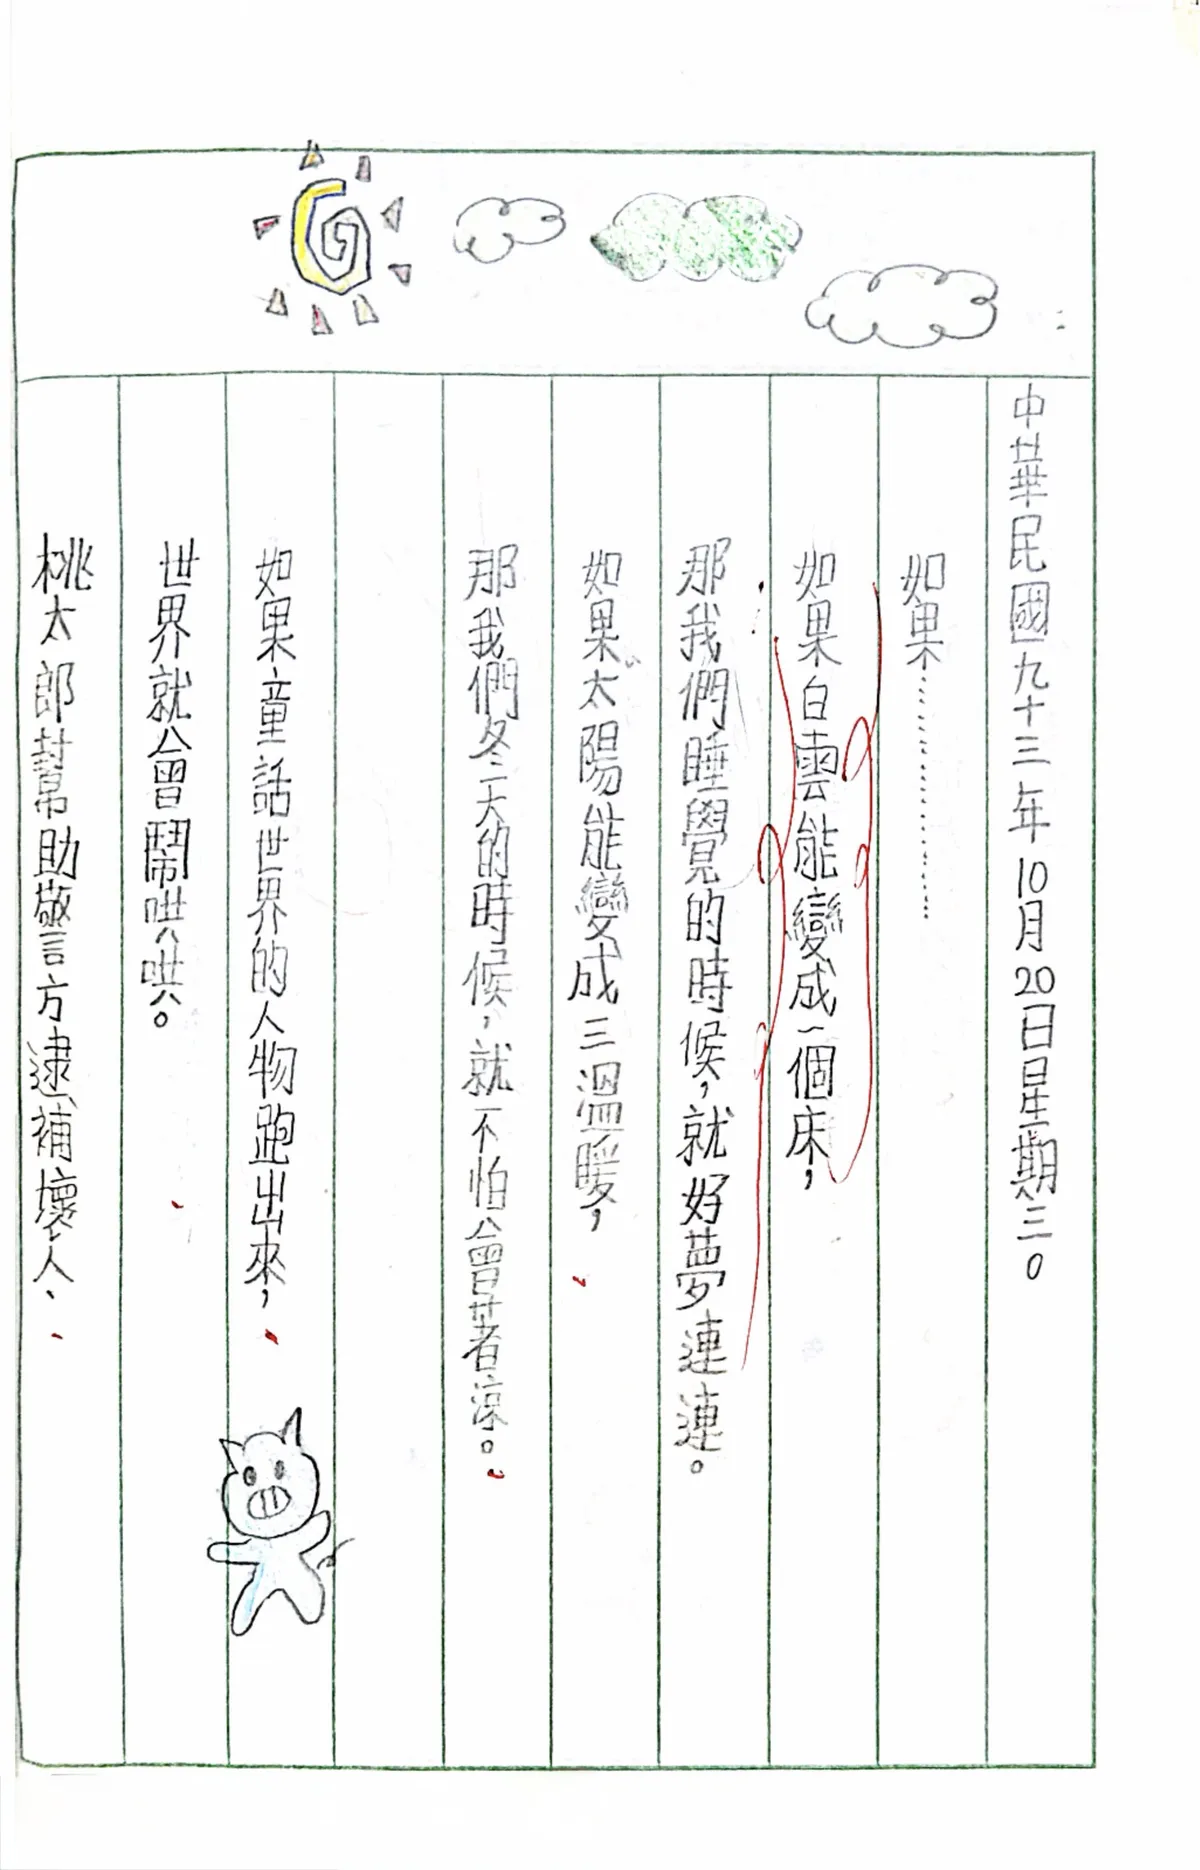 中華民國九十三年10月20日星期三。
如果……………………
如果白雲能變成一個床，
那我們睡覺的時候，就好夢連連。
如果太陽能變成三溫暖，
那我們冬天的時候，就不怕會著涼。
如果童話世界的人物跑出來，
世界就會鬧哄哄。
桃太郎幫助警方逮補壞人、